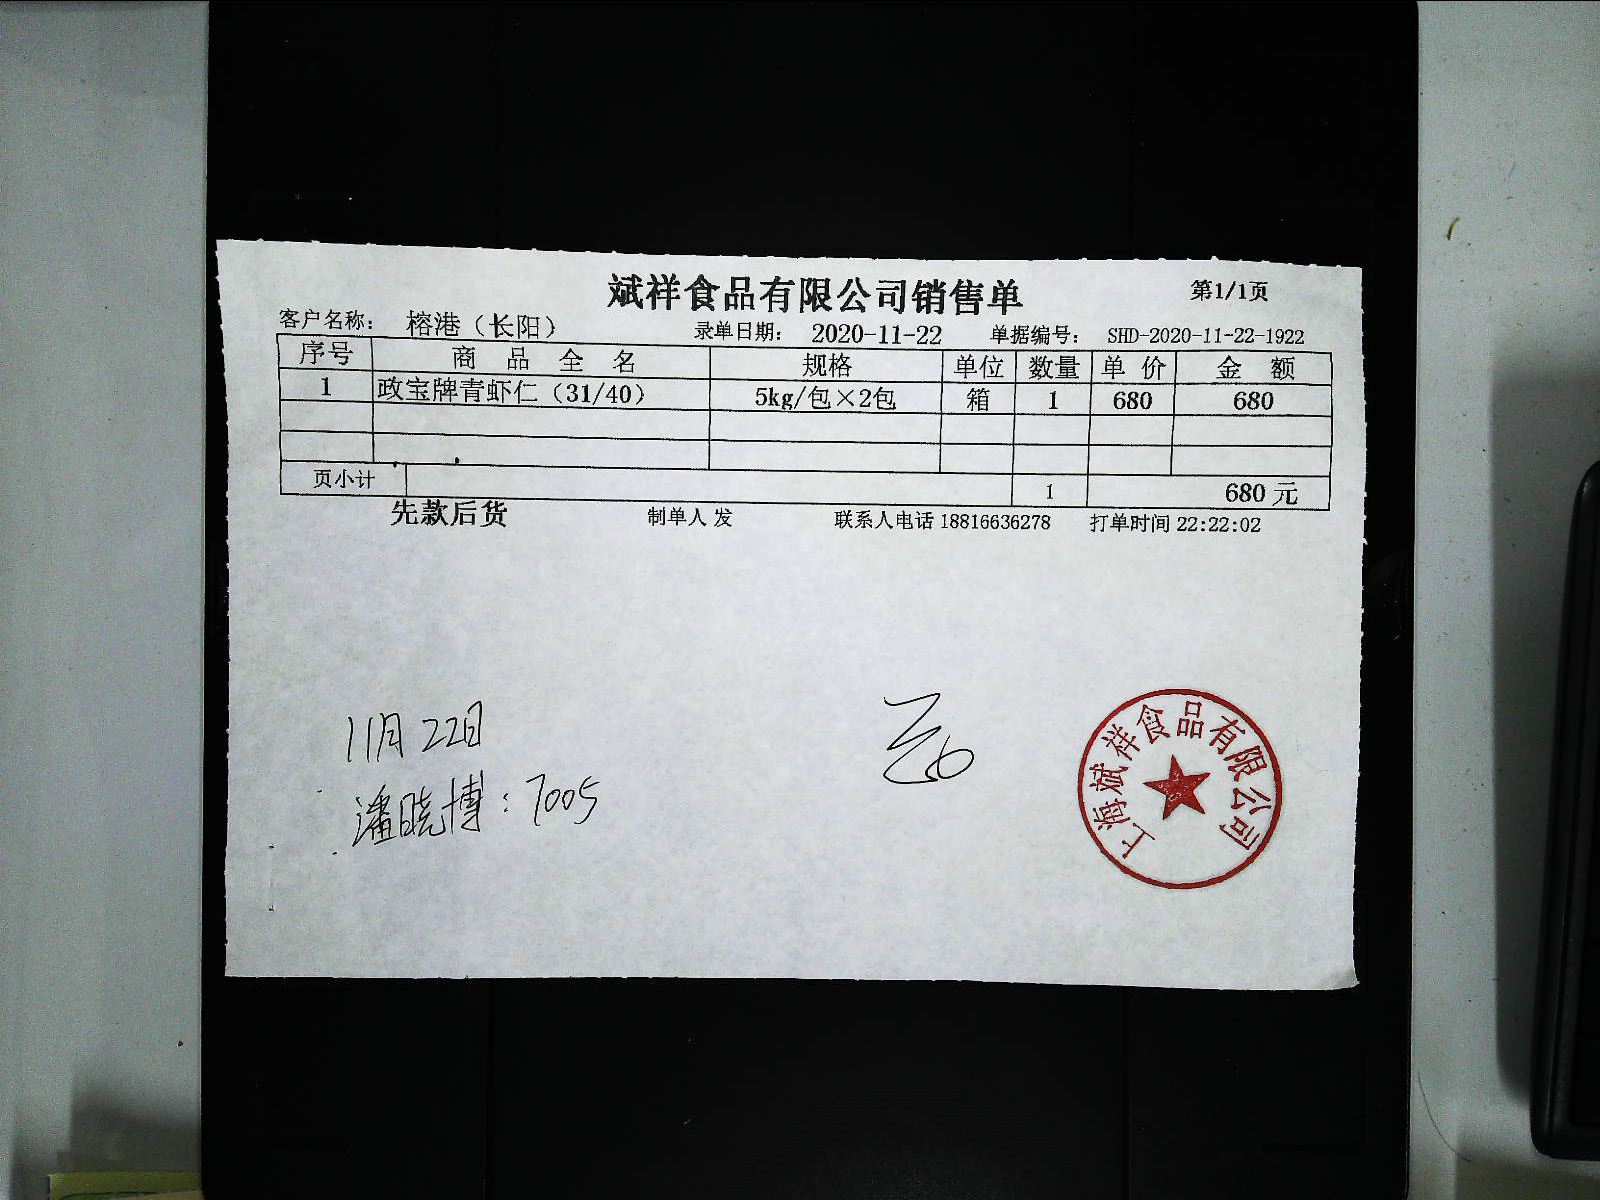 斌祥食品有限公司销售单 第1/1页
客户名称： 榕港（长阳） 录单日期： 2020-11-22 单据编号： SHD-2020-11-22-1922
序号 商品全名 规格 单位 数量 单价 金额
1 政宝牌青虾仁（31/40） 5kg/包×2包 箱 1 680 680
页小计 1 680 元
先款后货 制单人 发 联系人电话 18816636278 打单时间 22:22:02
11月22日
潘晓博：7005
上海斌祥食品有限公司